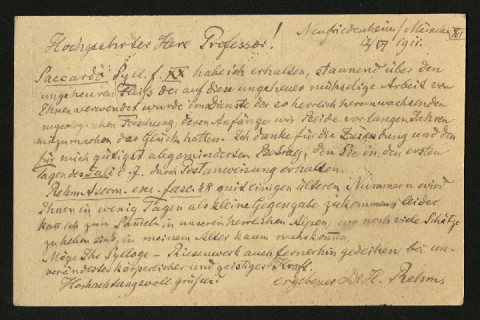 Neufriedenheim/München XII
2/VI 1911.
Hochgeehrter Herr Professor!
Saccardo: Syll. f. XX habe ich erhalten, staunend über den
ungeheuren Fleiss der auf diese ungeheuer mühselige Arbeit von
Ihnen verwendet wurde im Dienste der so herrlich heranwachsenden
mycologischen Forschung, deren Anfänge wir Beide vor langen Jahren
mitzumachen das Glück hatten. Ich danke für die Zusendung und den
für mich gütigst abgeminderten Betrag, den Sie in den ersten
Tagen des Juli d. J. durch Postanweisung erhalten.
Rehm Ascom. exs. fasc. 48 mit einigen älteren Nummern wird
Ihnen in wenig Tagen als kleine Gegengabe zukommen. Leider
kann ich zum Sammeln in unseren herrlichen Alpen, wo noch viele Schätze
zu heben sind, in meinem Alter kaum mehr kommen.
Möge Ihr Sylloge-Riesenwerk auch fernerhin gedeihen bei un-
veränderter körperlicher und geistiger Kraft.
Hochachtungsvoll grüssend
ergebener Dr H. Rehm